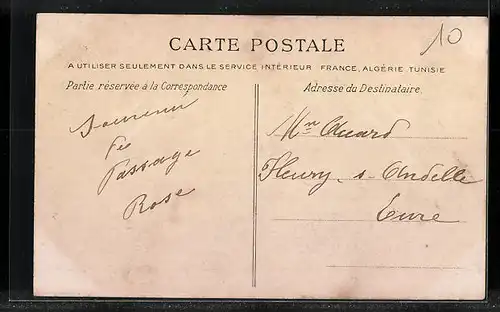 CARTE POSTALE
10
A UTILISER SEULEMENT DANS LE SERVICE INTÉRIEUR FRANCE, ALGÉRIE, TUNISIE
Partie réservée à la Correspondance
Adresse du Destinataire.
Souvenir
Passage
Rose
Mm
Fleury s Andelle
Eure